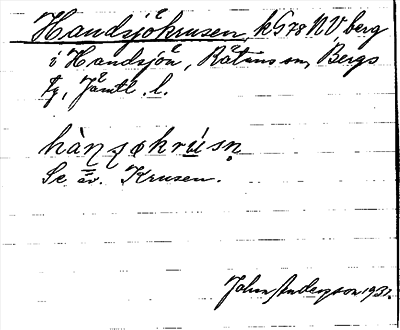 Handsjökrusen, k578 NV, berg
i Handsjön, Rätans sn, Bergs
tg, Jämtl. l.
hànsøkrúsn̥
Se äv. Krusen.
John Anderson 1931.